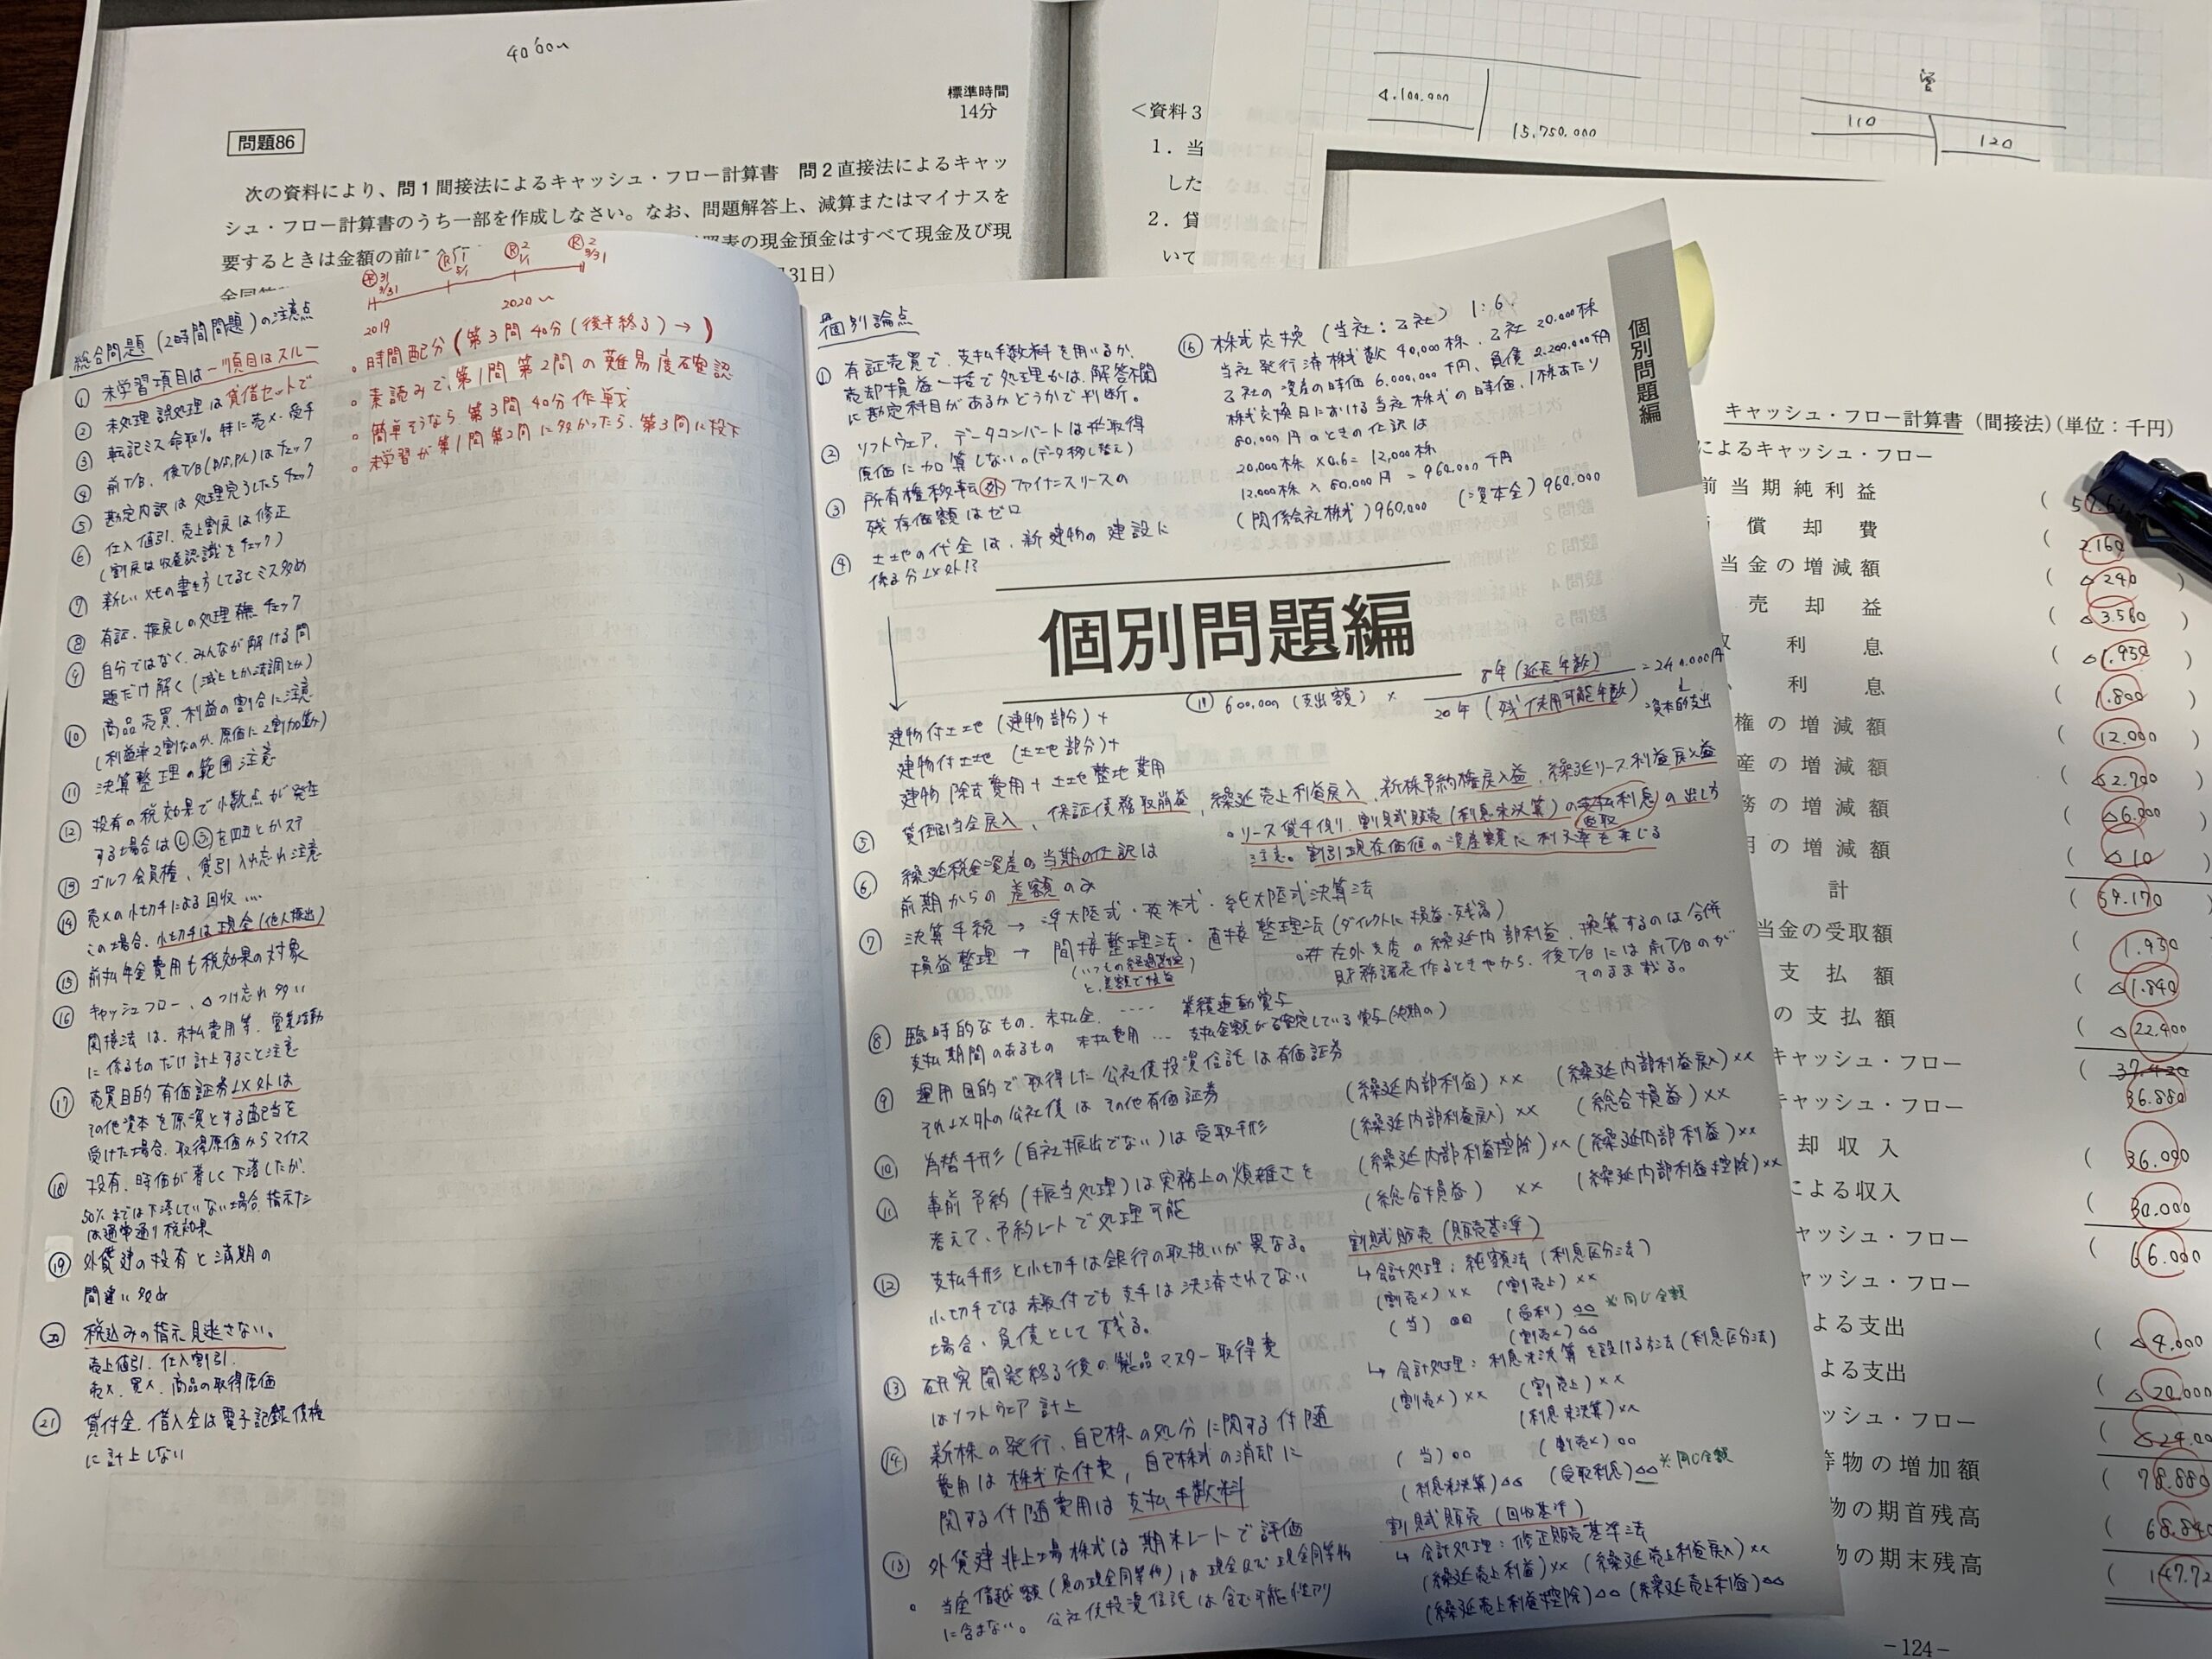 40'60〜
標準時間
14分
問題86
次の資料により、問1間接法によるキャッシュ・フロー計算書　問2直接法によるキャッ
シュ・フロー計算書のうち一部を作成しなさい。なお、問題解答上、減算またはマイナスを
要するときは金額の前に
照表の現金預金はすべて現金及び現
月31日）
＜資料3
1．当
した
2．貸
いて
4.100.000
15.750.000
110
120
総合問題(2時間問題)の注意点
① 未学習項目は一項目はスルー
② 未処理 誤処理は貸借セットで
③ 転記ミス命取り。特に売×・受手
④ 前T/B、後T/B(B/S,P/L)はチェック
⑤ 勘定内訳は処理完了したらチェック
⑥ 仕入値引、売上割戻は修正
(割戻は収益認識をチェック)
⑦ 新しい×モの書き方してるとミス多め
⑧ 有証、振戻しの処理有無チェック
⑨ 自分ではなく、みんなが解ける問
題だけ解く
⑩ 商品売買、利益の割合に注意
(利益率2割なのか、原価に2割加算か)
⑪ 決算整理の範囲注意
⑫ 投有の税効果で小数点が発生
する場合は
⑬ ゴルフ会員権、貸引入れ忘れ注意
⑭ 売×の小切手による回収…
この場合、小切手は現金(他人振出)
⑮ 前払年金費用も税効果の対象
⑯ キャッシュフロー、△つけ忘れ多い
間接法は、未払費用等、営業活動
に係るものだけ計上すること注意
⑰ 売買目的有価証券以外は
その他資本を原資とする配当を
受けた場合、取得原価からマイナス
⑱ 投有、時価が著しく下落したが、
50%までは下落していない場合、指示なし
は通常通り税効果
⑲ 外貨建の投有と満期の
間違い多め
⑳ 税込みの指示見逃さない。
売上値引、仕入割引、
売×、買×、商品の取得原価
21 貸付金、借入金は電子記録債権
に計上しない
㊗31 3/31
2019
Ⓡ1 5/1
Ⓡ2 1/1
2020〜
Ⓡ2 3/31
。時間配分(第3問40分(後半終了)→)
。素読みで、第1問 第2問の難易度確認
。簡単そうなら 第3問 40分作戦
。未学習が第1問第2問に多かったら、第3問に投下
個別論点
① 有証売買で、支払手数料を用いるか、
売却損益一括で処理かは、解答欄
に勘定科目があるかどうかで判断。
② ソフトウェア、データコンバートは取得
原価に加算しない。(データ移し替え)
③ 所有権移転外ファイナンスリースの
残存価額はゼロ
④ 土地の代金は、新建物の建設に
係る分以外!?
⑯ 株式交換 (当社：乙社) 1:6
当社発行済株式数 40,000株、乙社 20.000株
乙社の資産の時価 6.000,000千円、負債 2.200.000千円
株式交換日における当社株式の時価、1株あたり
80,000円のときの仕訳は
20,000株×0.6=12,000株
12.000株×80.000円=960.000千円
(関係会社株式)960,000 (資本金)960.000
個別問題編
個別問題編
600.000(支出額)× 8年(延長年数)
20年(残使用可能年数)
=240.000円
資本的支出
建物付土地(建物部分)+
建物付土地(土地部分)+
建物除去費用+土地整地費用
⑤ 貸倒引当金戻入、保証債務取崩益、繰延売上利益戻入、新株予約権戻入益、繰延リース利益戻入益
。リース貸手側り、割賦販売(利息未決算)の支払利息の出し方
受取
注意。割引現在価値の資産額に利子率を乗じる
⑥ 繰延税金資産の当期の仕訳は
前期からの差額のみ
⑦ 決算手続→準大陸式・英米式・純大陸式決算法
損益整理→間接整理法・直接整理法(ダイレクトに損益・残高)
(いつもの経過勘定
と、差額で損益)
在外支店の繰延内部利益、換算するのは合併
財務諸表作るときやから、後T/Bには前T/Bのが
そのまま載る。
⑧ 臨時的なもの、未払金、…… 業績連動賞与
支払期間のあるもの 未払費用… 支払金額が確定している賞与
⑨ 運用目的で取得した公社債投資信託は有価証券
それ以外の公社債はその他有価証券
⑩ 為替手形(自社振出でない)は受取手形
⑪ 事前予約(振当処理)は実務上の煩雑さを
考えて、予約レートで処理可能
⑫ 支払手形と小切手は銀行の取扱いが異なる。
小切手では未取付でも支手は決済されてない
場合、負債として残る。
⑬ 研究開発終了後の製品マスター取得費
はソフトウェア計上
⑭ 新株の発行、自己株の処分に関する付随
費用は株式交付費、自己株式の消却に
関する付随費用は支払手数料
⑮ 外貨建非上場株式は期末レートで評価
。当座借越額(負の現金同等物)は現金及び現金同等物
に含まない。公社債投資信託は含む可能性アリ
(繰延内部利益)×× (繰延内部利益戻入)××
(繰延内部利益戻入)×× (総合損益)××
(繰延内部利益控除)××(繰延内部利益)××
(総合損益)×× (繰延内部利益控除)××
割賦販売(販売基準)
↳会計処理：総額法(利息区分法)
(割売×)×× (割売上)××
(当)○○ (受利)△△ ※同じ金額
(割売×)△△
↳会計処理：利息未決算を設ける方法(利息区分法)
(割売×)×× (割売上)××
(利息未決算)××
(当)○○ (割売×)○○
(利息未決算)△△ (受取利息)△△ ※同じ金額
割賦販売(回収基準)
↳会計処理：修正販売基準法
(繰延売上利益)××(繰延売上利益戻入)××
(繰延売上利益控除)△△(繰延売上利益)△△
キャッシュ・フロー計算書（間接法）(単位：千円）
によるキャッシュ・フロー
前当期純利益
償却費 ( 2.160
当金の増減額 ( △240 )
売却益 ( △3.560 )
利息 ( △1.950 )
利息 ( 1.800 )
権の増減額 ( 12.000 )
産の増減額 ( △2.700 )
務の増減額 ( △6.000 )
用の増減額 ( △10 )
計 ( 54.170 )
当金の受取額 ( 1.950 )
支払額 ( △1.840 )
の支払額 ( △22.400 )
キャッシュ・フロー ( 37.420
36.880
キャッシュ・フロー
却収入 ( 36.000 )
による収入 ( 30.000 )
キャッシュ・フロー ( 66.000
ャッシュ・フロー
よる支出 ( △4.000
よる支出 ( △20.000
ッシュ・フロー ( △24.00
等物の増加額 ( 78.880
物の期首残高 ( 68.840
物の期末残高 ( 147.72
－124－